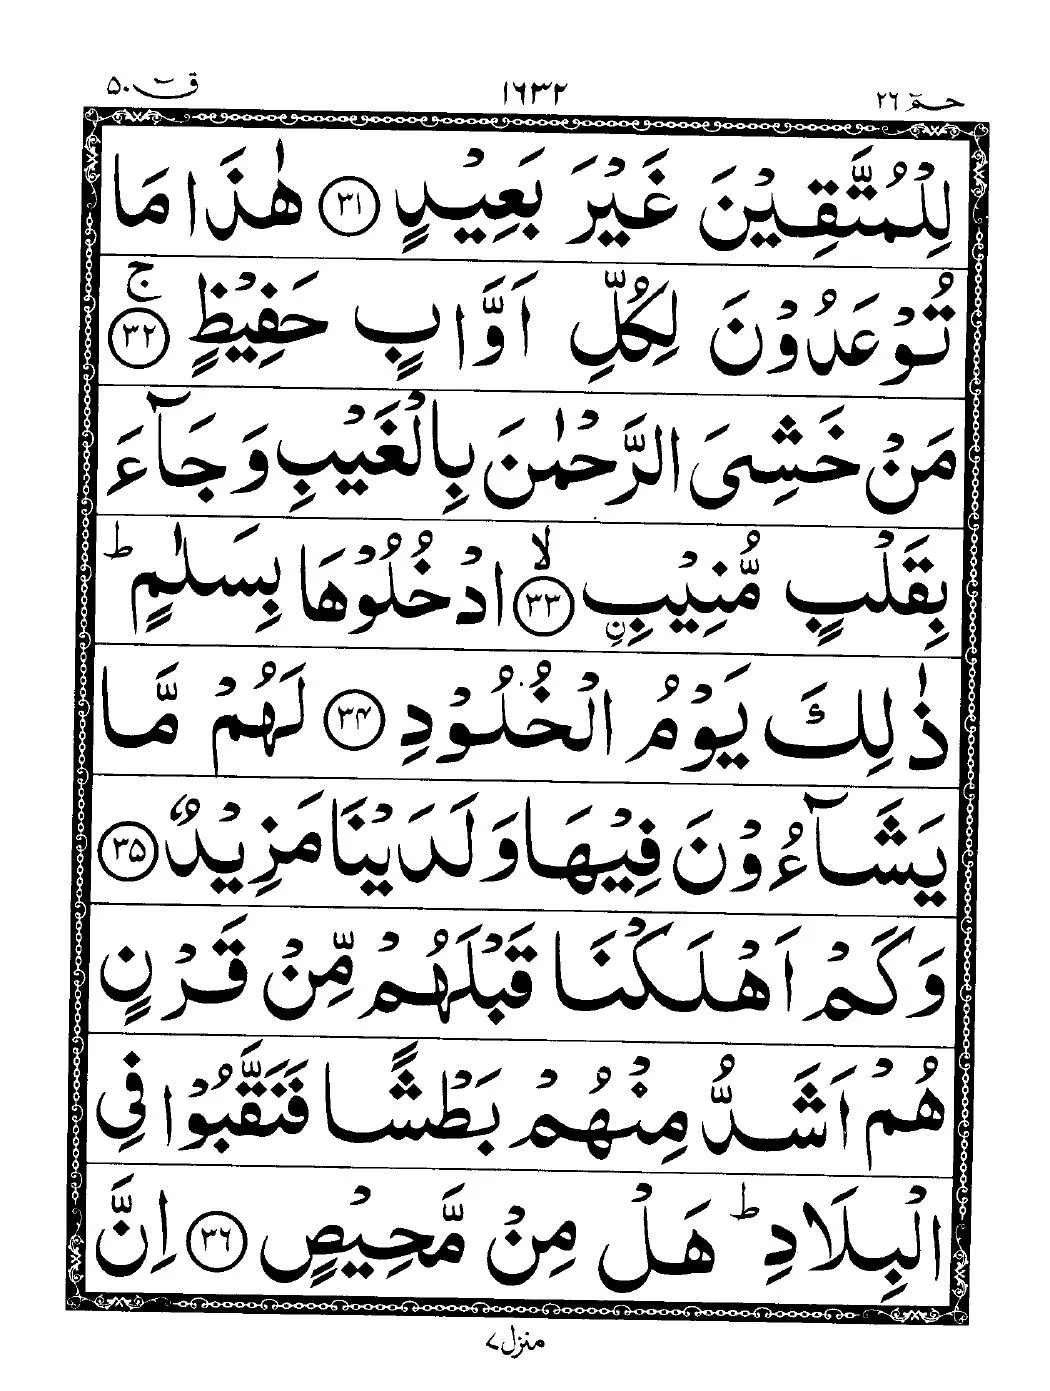 حٰمٓ ٢٦ ١٦٣٢ قٓ ٥٠
لِلْمُتَّقِيْنَ غَيْرَ بَعِيْدٍ ﴿٣١﴾ هٰذَا مَا
تُوْعَدُوْنَ لِكُلِّ اَوَّابٍ حَفِيْظٍ ۚ ﴿٣٢﴾
مَنْ خَشِىَ الرَّحْمٰنَ بِالْغَيْبِ وَجَآءَ
بِقَلْبٍ مُّنِيْبِ ۙ﴿٣٣﴾ ادْخُلُوْهَا بِسَلٰمٍ ؕ
ذٰلِكَ يَوْمُ الْخُلُوْدِ ﴿٣٤﴾ لَهُمْ مَّا
يَشَآءُوْنَ فِيْهَا وَلَدَيْنَا مَزِيْدٌ ﴿٣٥﴾
وَكَمْ اَهْلَكْنَا قَبْلَهُمْ مِّنْ قَرْنٍ
هُمْ اَشَدُّ مِنْهُمْ بَطْشًا فَنَقَّبُوْا فِى
الْبِلَادِ ؕ هَلْ مِنْ مَّحِيْصٍ ﴿٣٦﴾ اِنَّ
منزل ٧